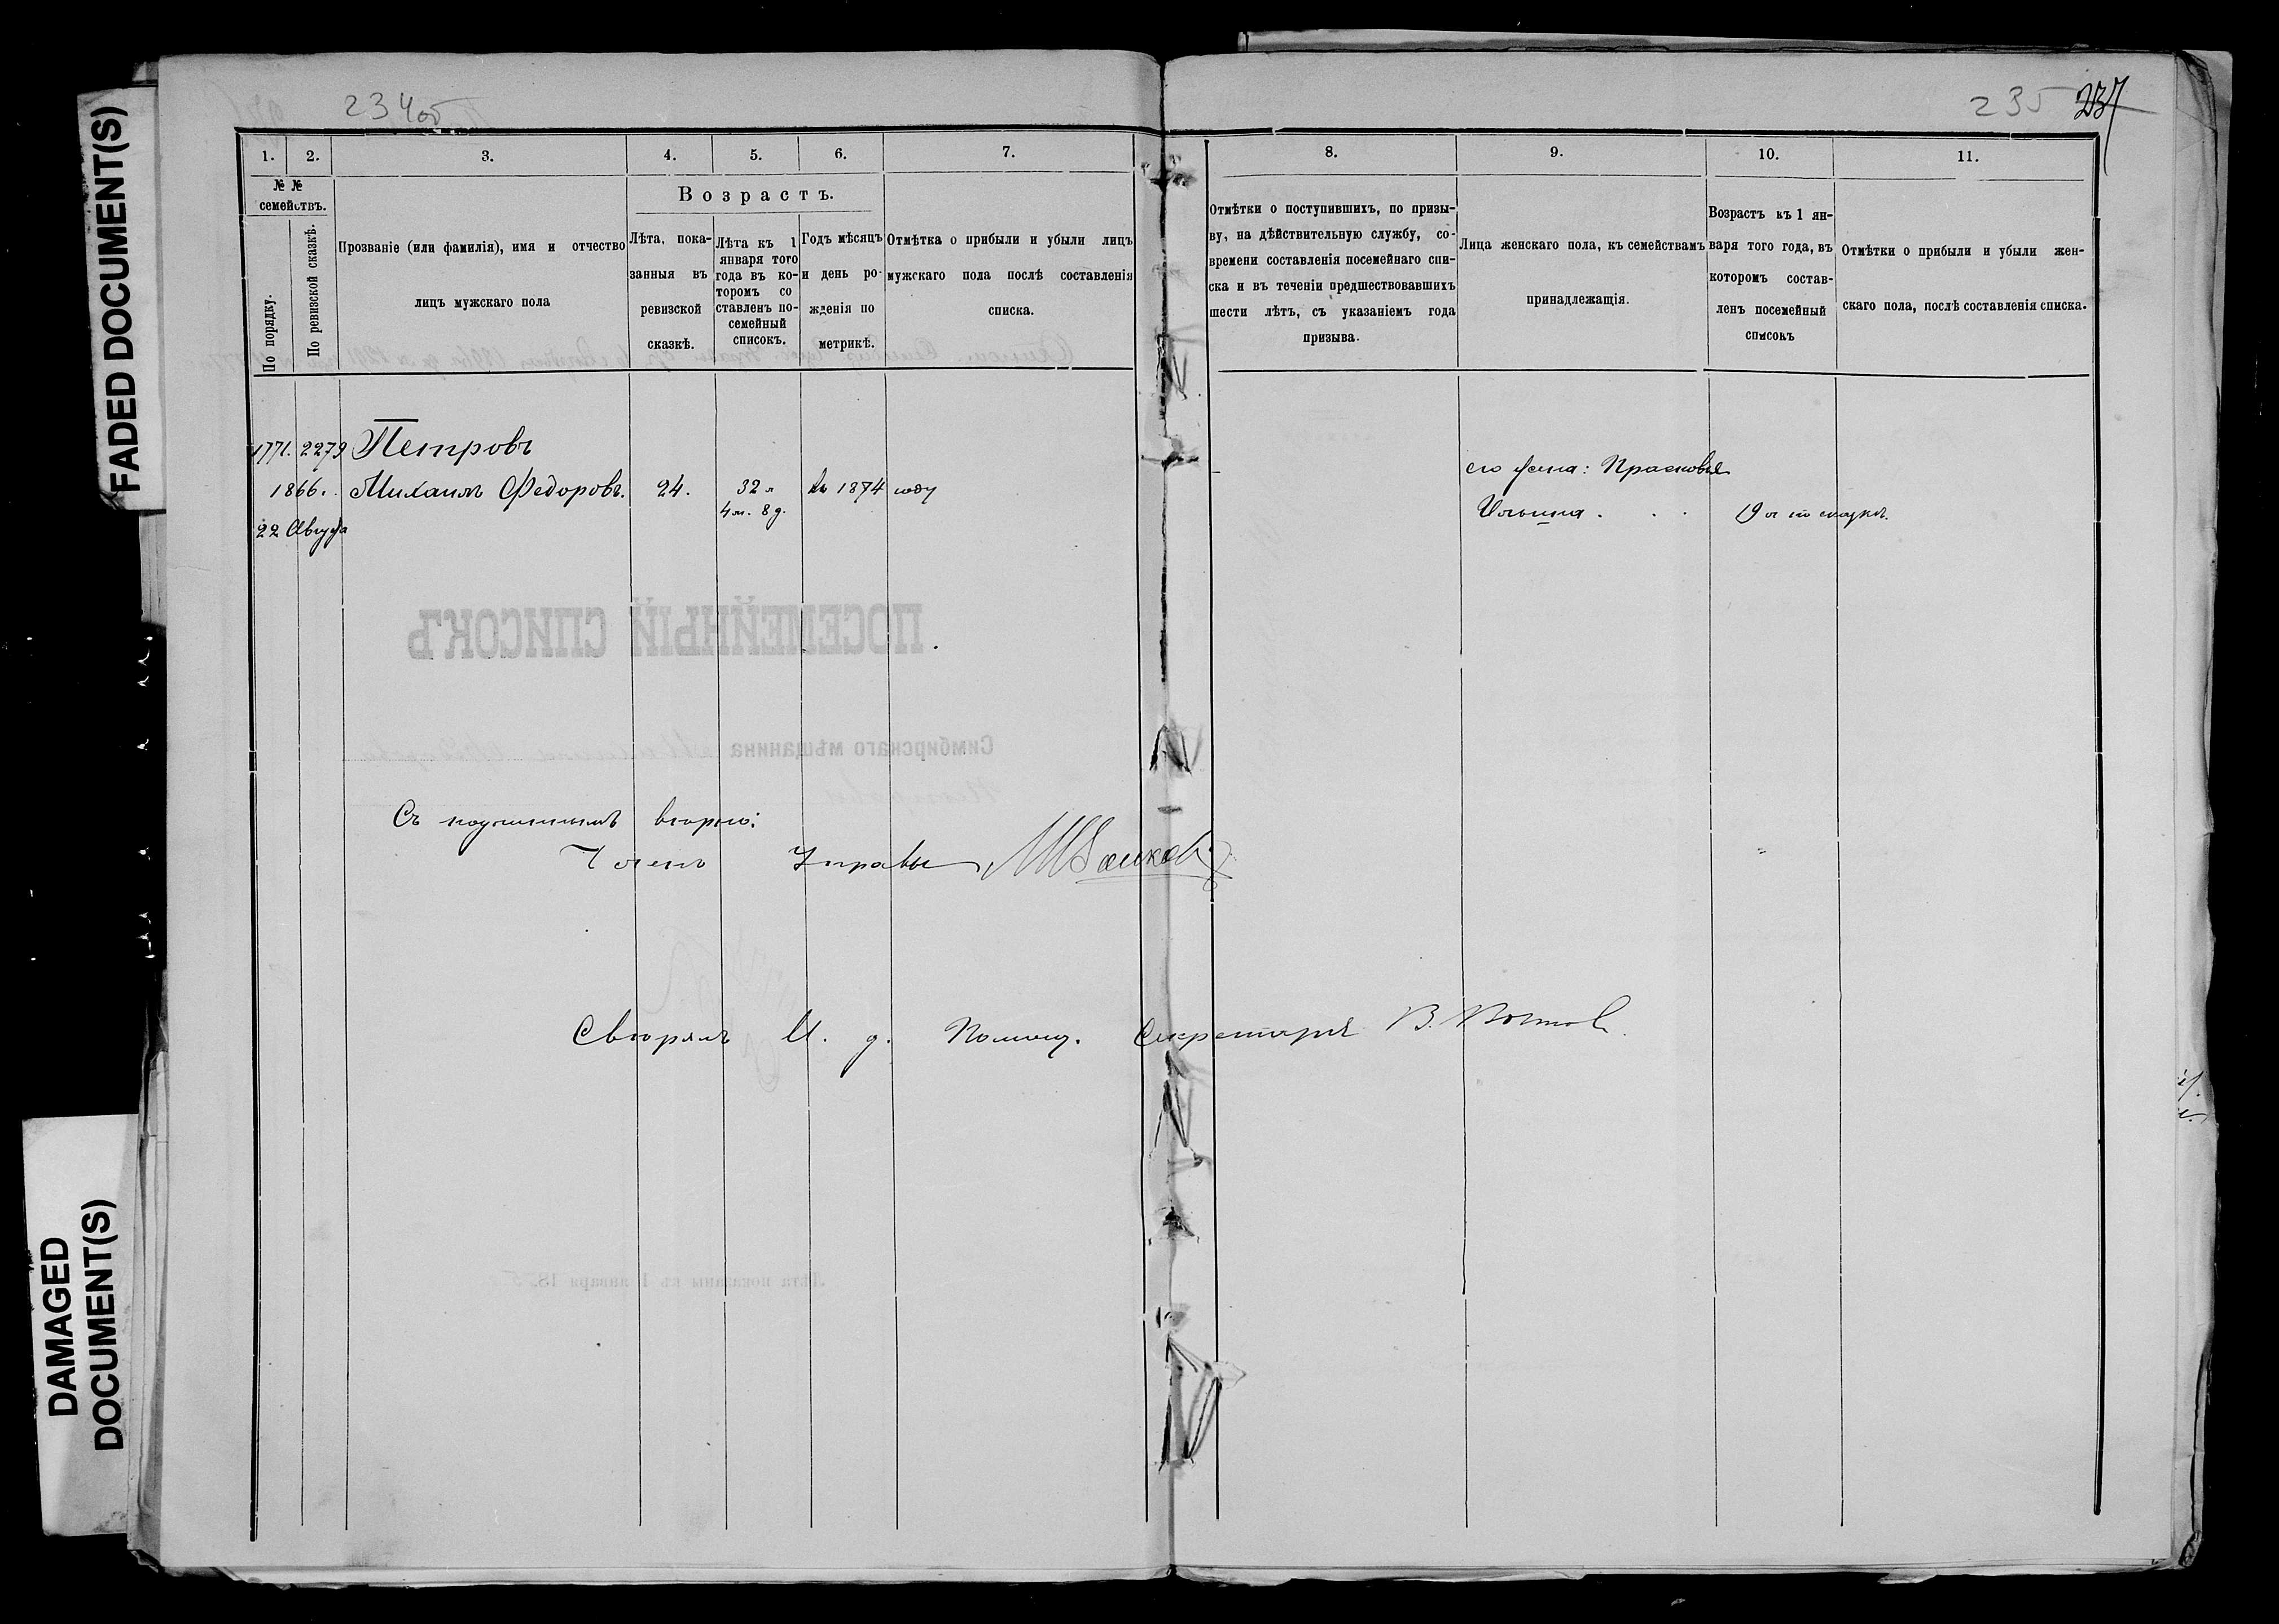 FADED DOCUMENT(S)
DAMAGED
DOCUMENT(S)
234об
235 237
1. 2. 3. 4. 5. 6. 7. 8. 9. 10. 11.
№ №
семействъ.
По порядку.
По ревизской сказкѣ.
Прозваніе (или фамилія), имя и отчество
лицъ мужскаго пола
Возрастъ.
Лѣта, пока-
занныя въ
ревизской
сказкѣ.
Лѣта къ 1
января того
года въ ко-
торомъ со
ставленъ по-
семейный
списокъ.
Годъ мѣсяцъ
и день ро-
жденія по
метрикѣ.
Отмѣтка о прибыли и убыли лицъ
мужскаго пола послѣ составленія
списка.
Отмѣтки о поступившихъ, по призы-
ву, на дѣйствительную службу, со-
времени составленія посемейнаго спи-
ска и въ теченіи предшествовавшихъ
шести лѣтъ, съ указаніемъ года
призыва.
Лица женскаго пола, къ семействамъ
принадлежащія.
Возрастъ къ 1 ян-
варя того года, въ
которомъ состав-
ленъ посемейный
списокъ
Отмѣтки о прибыли и убыли жен-
скаго пола, послѣ составленія списка.
1771. 2279 Петровъ
1866. Михаилъ Федоровъ. 24. 32 л Къ 1874 году
4 м. 8 д.
22 Августа
его жена: Прасковья
Ильина . . . 19 л по сказкѣ.
ПОСЕМЕЙНЫЙ СПИСОКЪ
Симбирскаго мѣщанина
Съ подлиннымъ вѣрно:
Членъ Управы
Свѣрялъ И. д. Помощ. Секретаря В.
Лѣта показаны къ 1 января 18